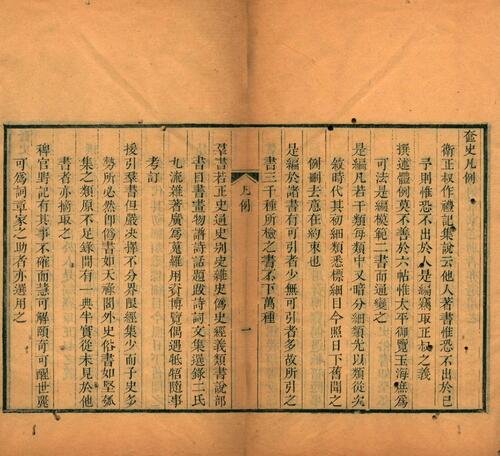 奩史凡例
衛正叔作禮記集說云他人著書惟恐不出於己
予則惟恐不出於人是編竊取正叔之義
撰述體例莫不善於六帖惟太平御覽玉海庶爲
可法是編模範二書而通變之
是編凡若干類每類中又暗分細類先以類從次
敘時代其初細類悉標細目今照日下舊聞之
例刪去意在約束也
是編於諸書有可引者少無可引者多故所引之
書三千種所檢之書不下萬種
凡例
一
羣書若正史通史別史雜史僞史經義類書說部
書目書畫物譜詩話題跋詩詞文集選錄二氏
九流雜著廣爲蒐羅用資博覽偶遇牴牾隨事
考訂
援引羣書但嚴決擇不分界限經集少而子史多
勢所必然卽僞書如天祿閣外史俗書如堅瓠
集之類原不足錄間有一典半實從未見於他
書者亦摘取之
稗官野記有其事不確而慧可解頤奇可醒世裏
可爲詞章家之助者亦選用之